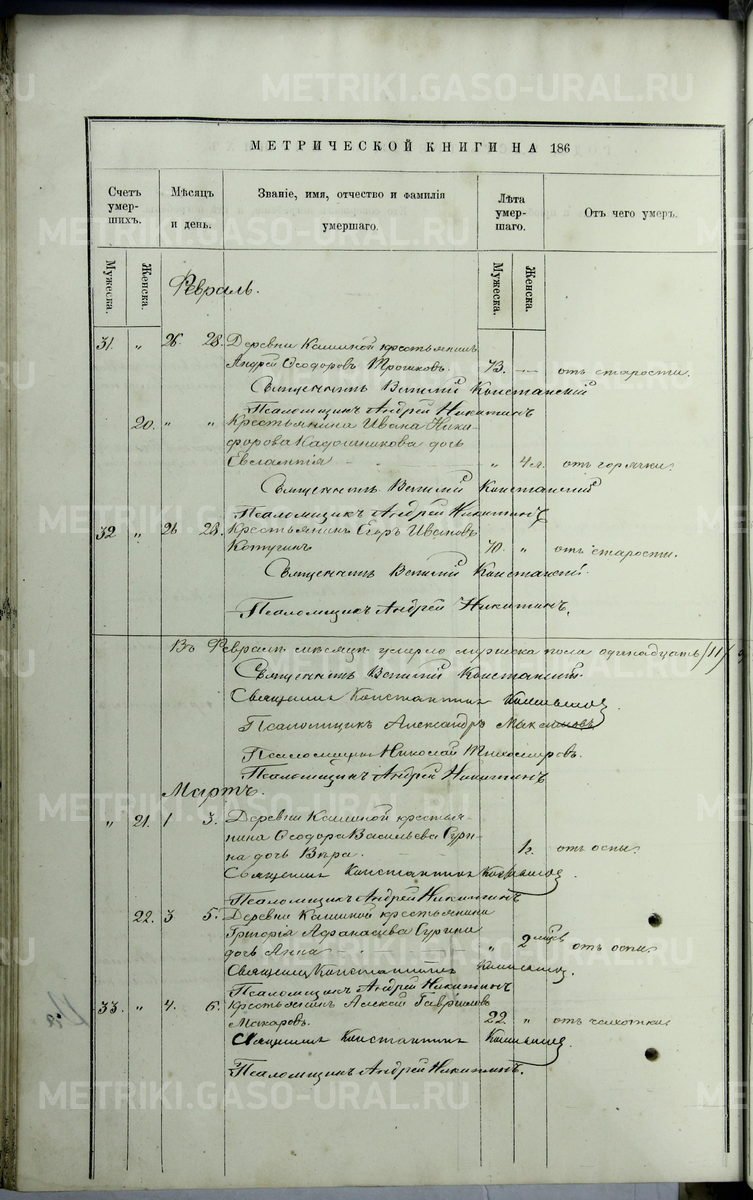 МЕТРИЧЕСКОЙ КНИГИ НА 186
Счетъ умер-шихъ.
Мѣсяцъ и день.
Званіе, имя, отчество и фамилія умершаго.
Лѣта умер-шаго.
Отъ чего умеръ.
Мужеска.
Женска.
Мужеска.
Женска.
Февраль.
31. " 26 28. Деревни Калиной крестьянинъ
Андрей Ѳеодоровъ Трошковъ. 73. — отъ старости.
Священникъ Василій Констанскій
Псаломщикъ Андрей Никитинъ
20. " " Крестьянина Ивана Ники-
форова Кадошникова дочь
Евлампія " 4 л. отъ горячки.
Священникъ Василій Констанскій
Псаломщикъ Андрей Никитинъ
32 " 26 28. Крестьянинъ Егоръ Ивановъ
70. " отъ старости.
Священникъ Василій Констанскій.
Псаломщикъ Андрей Никитинъ.
Въ Февралѣ мѣсяцѣ умерло мужеска пола одинадцать /11/
Священникъ Василій Констанскій.
Священникъ Константинъ
Псаломщикъ Александръ Максимовъ
Псаломщикъ Николай Тихомировъ.
Псаломщикъ Андрей Никитинъ
Мартъ.
" 21. 1 3. Деревни Калиной крестья-
нина Ѳеодора Васильева Сури-
на дочь Вѣра. 1 г. отъ оспы.
Священникъ Константинъ
Псаломщикъ Андрей Никитинъ
22. 3 5. Деревни Калиной крестьянина
Григорія Афанасьева Сурина
дочь Анна " 2 мѣсяц отъ оспы.
Священникъ Константинъ
Псаломщикъ Андрей Никитинъ
33. " 4. 6. Крестьянинъ Алексѣй Гавриловъ
Макаровъ. 22. " отъ чахотки
Священникъ Константинъ
Псаломщикъ Андрей Никитинъ.
METRIKI.GASO-URAL.RU